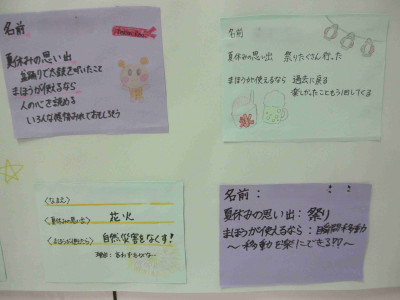 名前
夏休みの思い出
盆踊りで太鼓をたたいたこと
まほうが使えるなら
人の心を読める
いろんな感情みれておもしろそう
名前
夏休みの思い出 祭りたくさん行った
まほうが使えるなら 過去に戻る
楽しかったこともう1回してくる
〈なまえ〉
〈夏休みの思い出〉 花火
〈まほうが使えたら〉 自然災害をなくす!
名前:
夏休みの思い出:祭り
まほうが使えるなら:瞬間移動
〜移動を楽にできる??〜